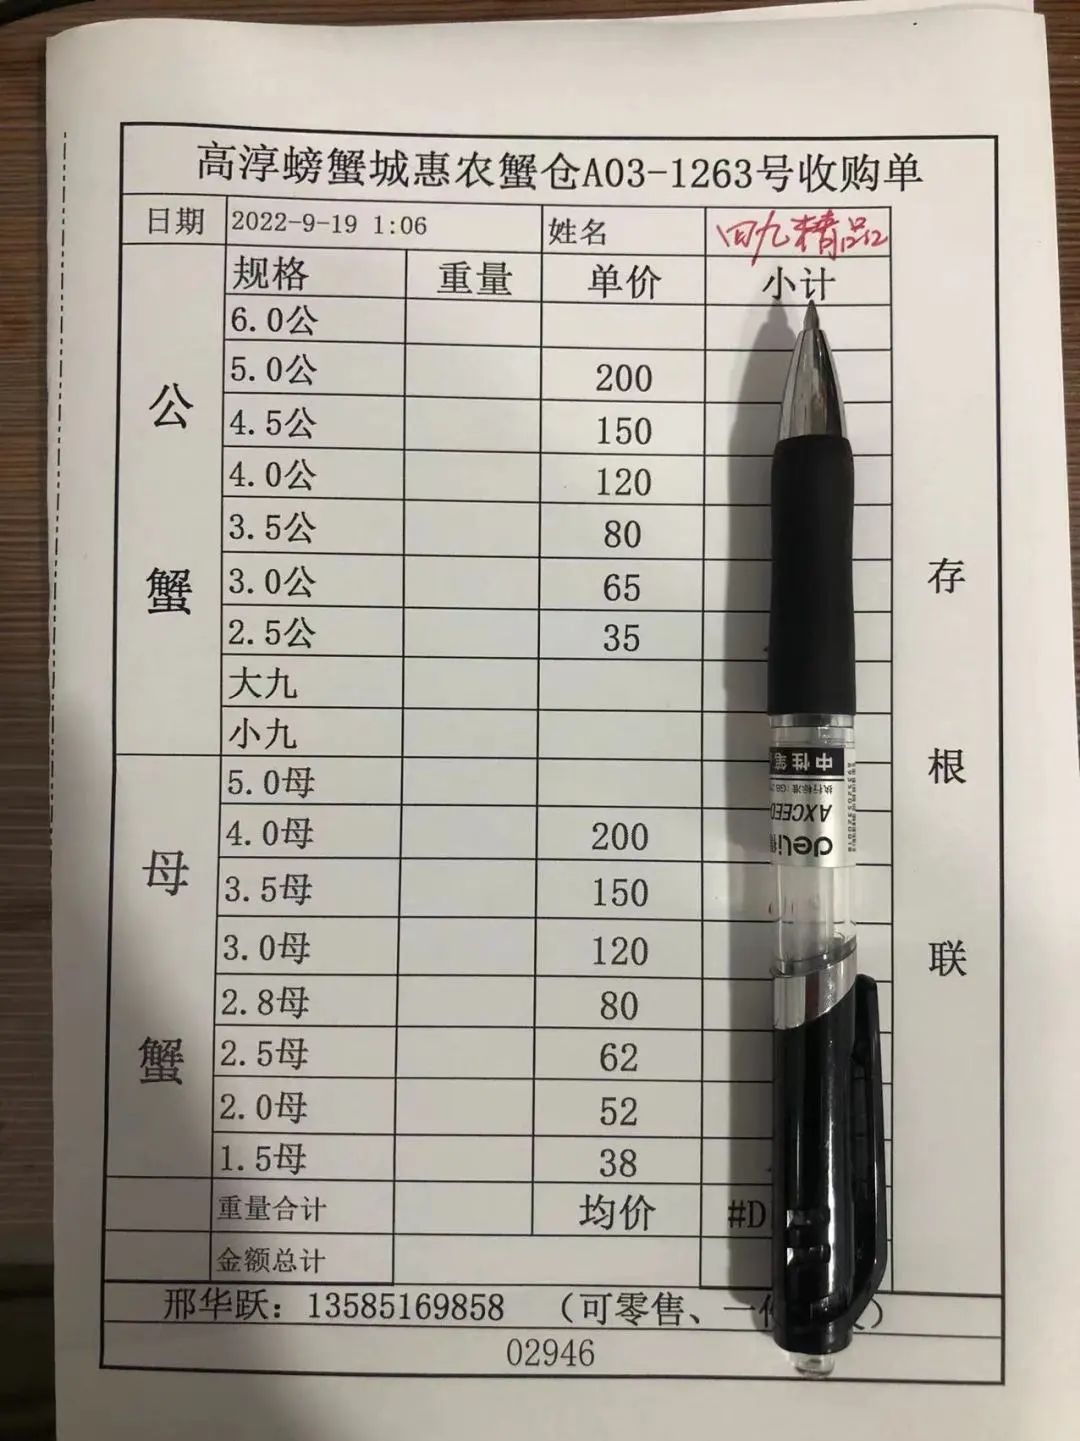 高淳螃蟹城惠农蟹仓A03-1263号收购单
日期 2022-9-19 1:06 姓名 四九精品
规格 重量 单价 小计
公蟹
6.0公
5.0公 200
4.5公 150
4.0公 120
3.5公 80
3.0公 65
2.5公 35
大九
小九
母蟹
5.0母
4.0母 200
3.5母 150
3.0母 120
2.8母 80
2.5母 62
2.0母 52
1.5母 38
重量合计 均价 #D
金额总计
邢华跃：13585169858 （可零售、一
02946
存根联
中性笔
执行标准：GB
AXCEED
deli